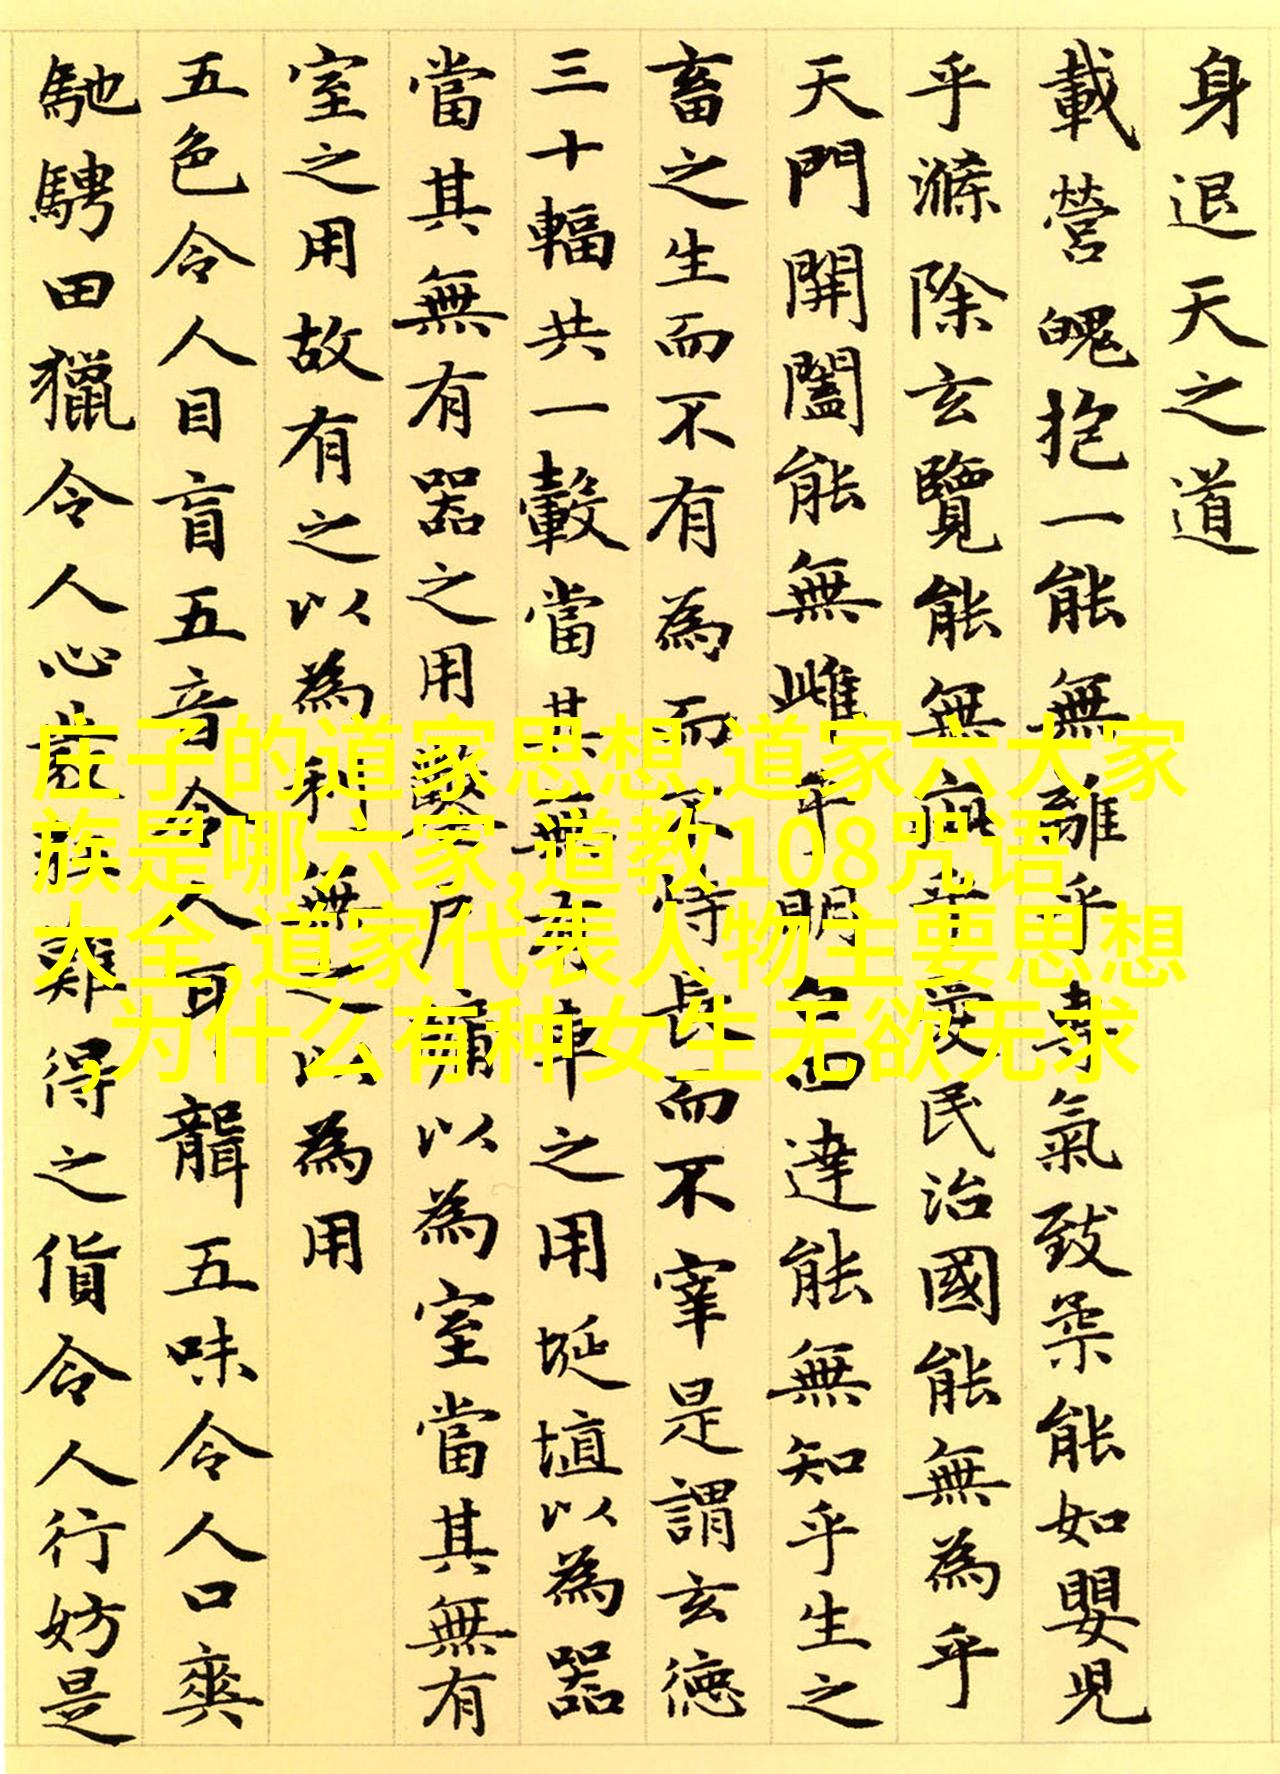 身退天之道
載營魄抱一能無離乎專氣致柔能如嬰兒
乎滌除玄覽能無疵乎愛民治國能無為乎
天門開闔能無雌乎明白四達能無知乎生之
畜之生而不有為而不恃長而不宰是謂玄德
三十輻共一轂當其無有車之用埏埴以為器
當其無有器之用鑿戶牖以為室當其無有
室之用故有之以為利無之以為用
五色令人目盲五音令人耳聾五味令人口爽
馳騁田獵令人心發狂難得之貨令人行妨是
庄子的道家思想,道家六大家
族是哪六家,道教108咒语
大全,道家代表人物主要思想
,为什么有种女生无欲无求